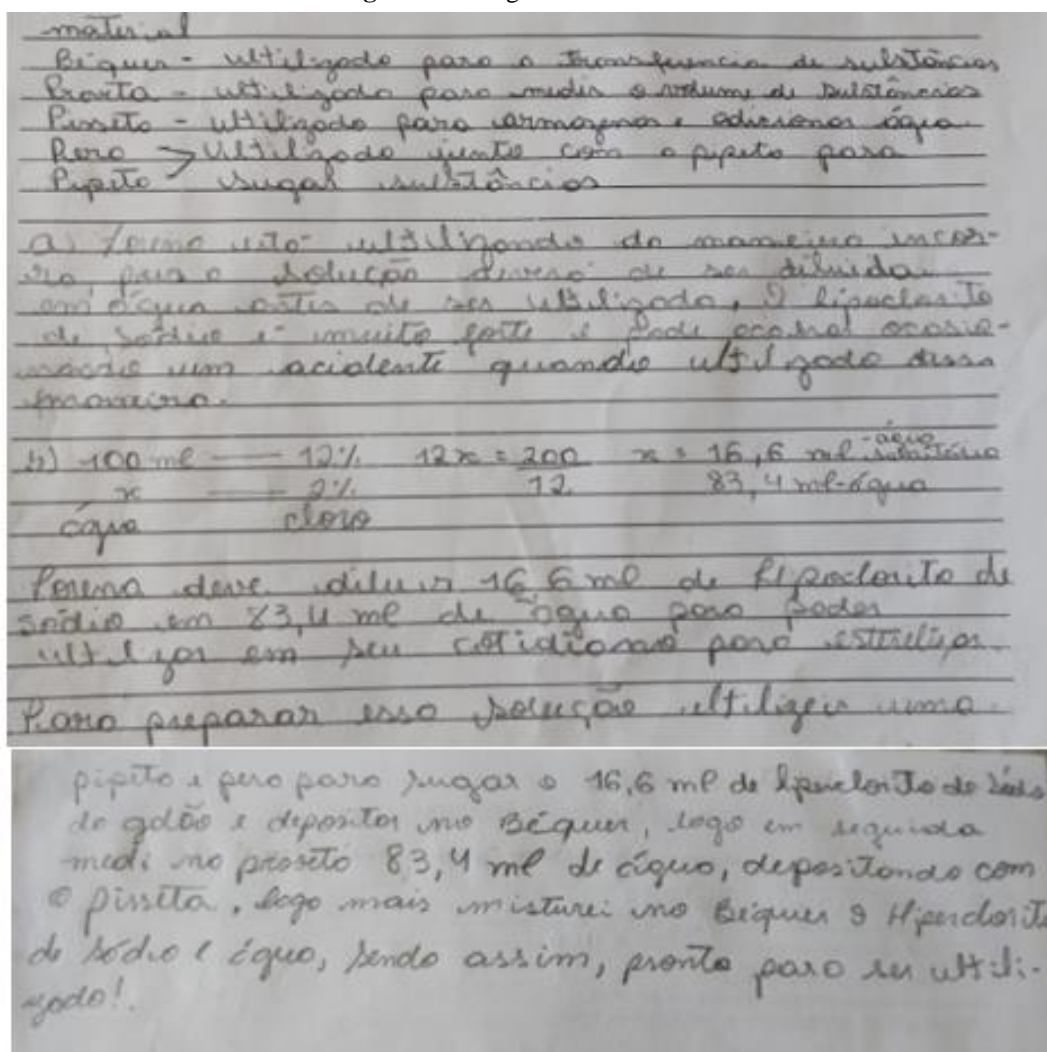 material
Béquer - ultilizado para a transferencia de substâncias
Proveta - ultilizado para medir o volume de substâncias
Pisseta - ultilizado para armazenar e adicionar água
Pera > Ultilizado junto com a pipeta para
Pipeta sugar substâncias
a) Lorena está ultilizando da maneira incor-
ra, pois a solução deverá de ser diluida
em água antes de ser ultilizada, O lipoclorito
de sódio é muito forte e pode ocasio-
um acidente quando ultilizado dessa
maneira.
b) 100 ml — 12% 12x = 200 x = 16,6 ml - água sanitária
x — 2% 12 83,4 ml - água
água cloro
Lorena deve diluir 16,6 ml de hipoclorito de
sódio em 83,4 ml de água para poder
ultilizar em seu cotidiano para
Para preparar essa solução ultilizei uma
pipeta e pera para sugar o 16,6 ml de lipoclorito de sódio
do galão e depositar no Béquer, logo em seguida
medi no proveta 83,4 ml de água, depositando com
a pisseta, logo mais misturei no Béquer o Hipoclorito
de sódio e água, sendo assim, pronta para ser ultili-
zado!.